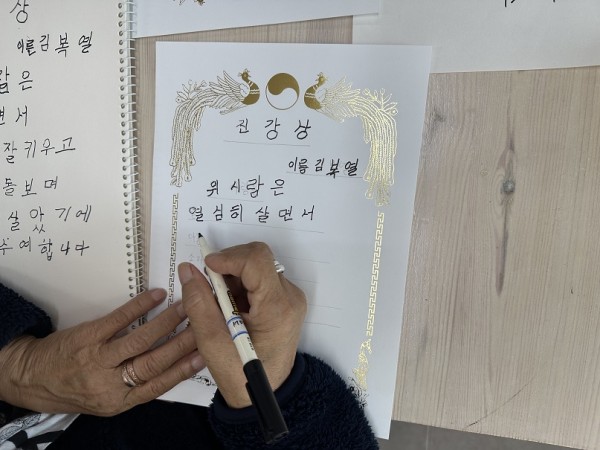 상
이름 김복열
람은
면서
잘 키우고
돌보며
살았기에
수여합니다
진강상
이름 김복열
위 사람은
열심히 살면서